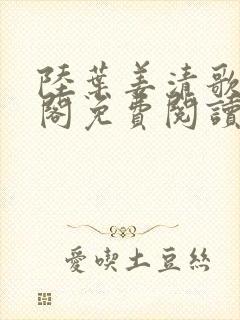 陸葉姜清歌
閣免費閱讀
愛喫土豆絲